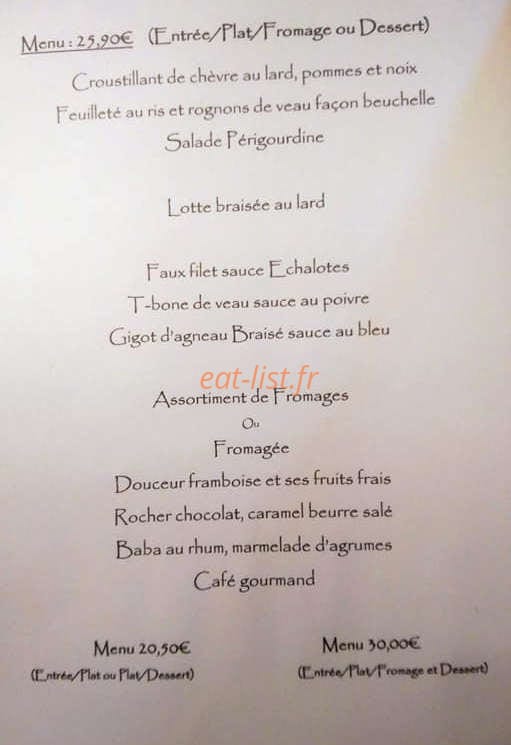 Menu : 25,90€ (Entrée/Plat/Fromage ou Dessert)
Croustillant de chèvre au lard, pommes et noix
Feuilleté au ris et rognons de veau façon beuchelle
Salade Périgourdine
Lotte braisée au lard
Faux filet sauce Echalotes
T-bone de veau sauce au poivre
Gigot d'agneau Braisé sauce au bleu
eat-list.fr
Assortiment de Fromages
Ou
Fromagée
Douceur framboise et ses fruits frais
Rocher chocolat, caramel beurre salé
Baba au rhum, marmelade d'agrumes
Café gourmand
Menu 20,50€ Menu 30,00€
(Entrée/Plat ou Plat/Dessert) (Entrée/Plat/Fromage et Dessert)